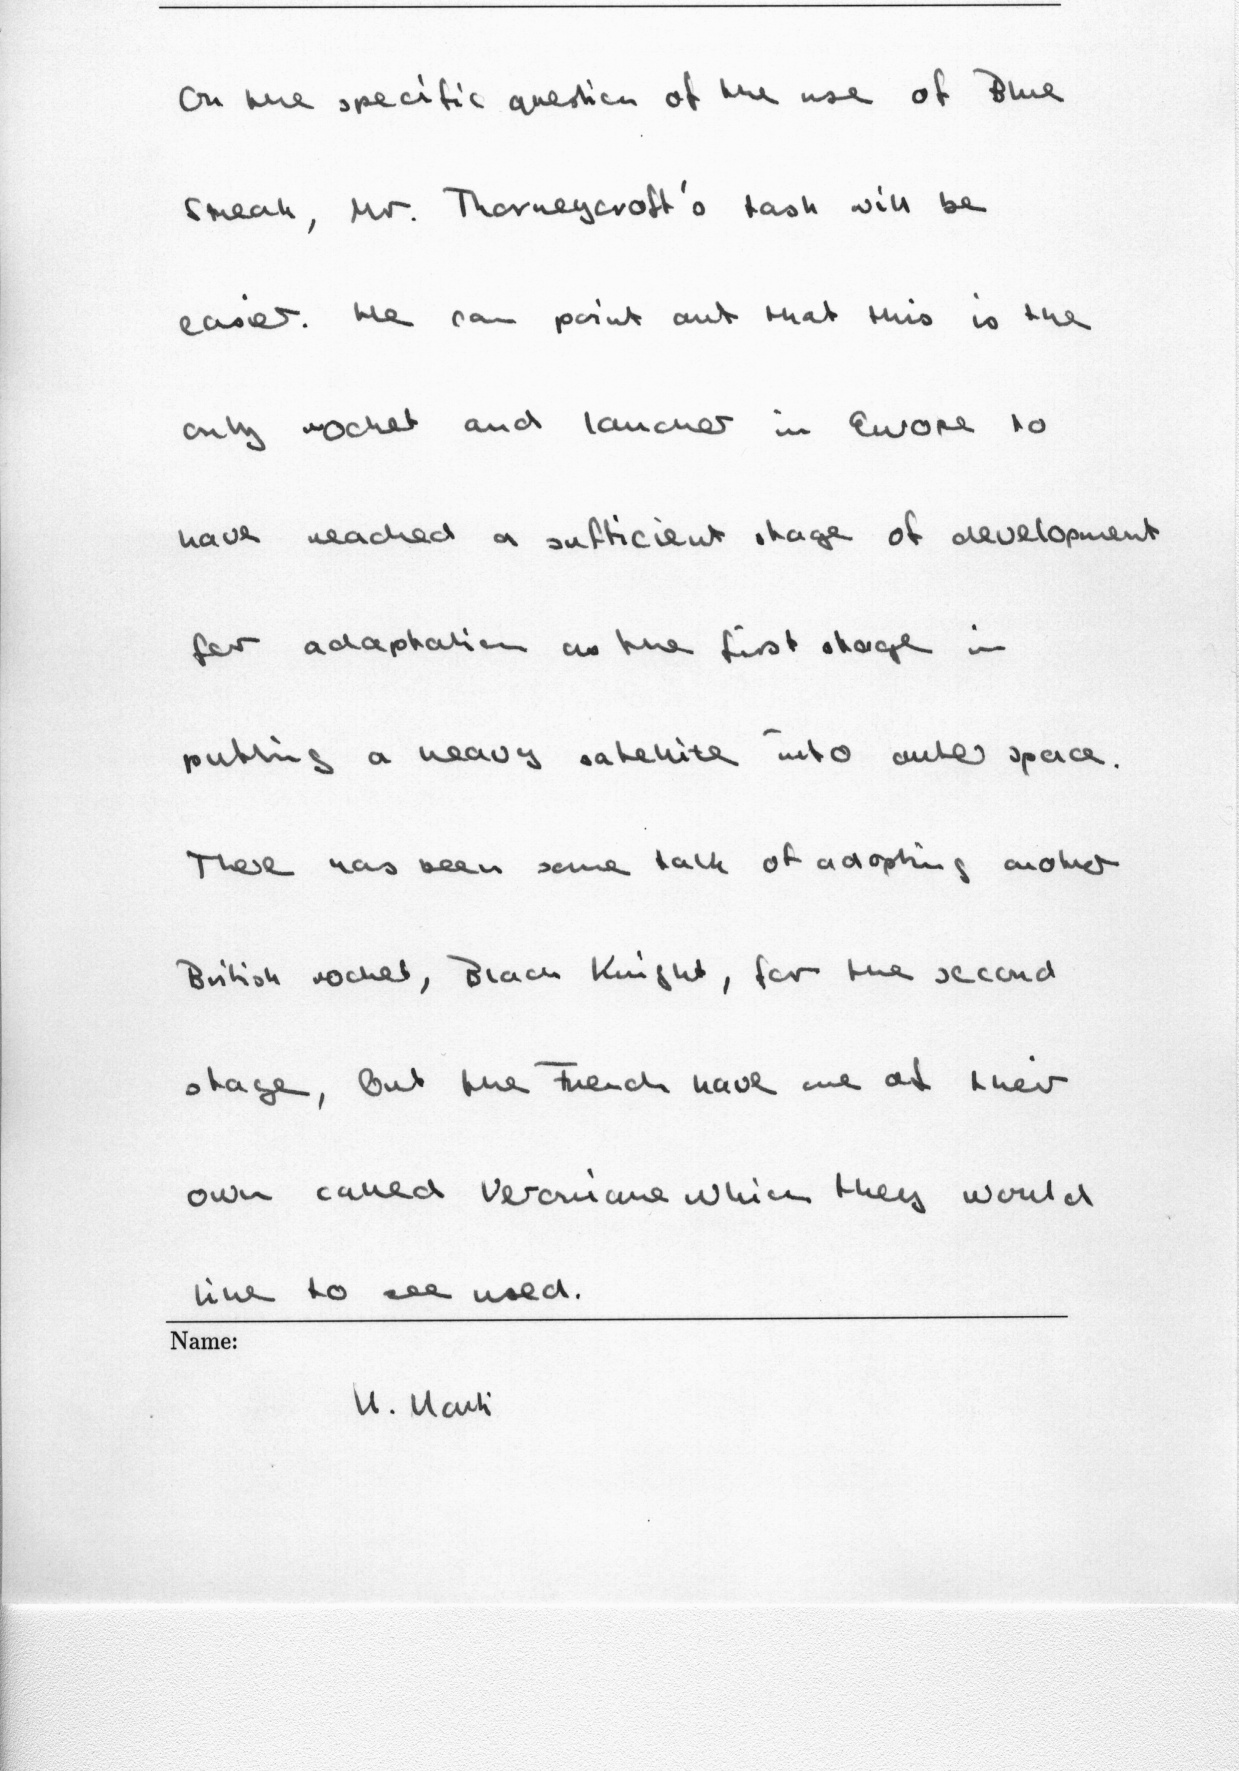 On the specific question of the use of Blue
Streak, Mr. Thorneycroft's task will be
easier. He can point out that this is the
only rocket and launcher in Europe to
have reached a sufficient stage of development
for adaptation as the first stage in
putting a heavy satellite into outer space.
There has been some talk of adopting another
British rocket, Black Knight, for the second
stage, but the French have one of their
own called Veronique which they would
like to see used.
Name: